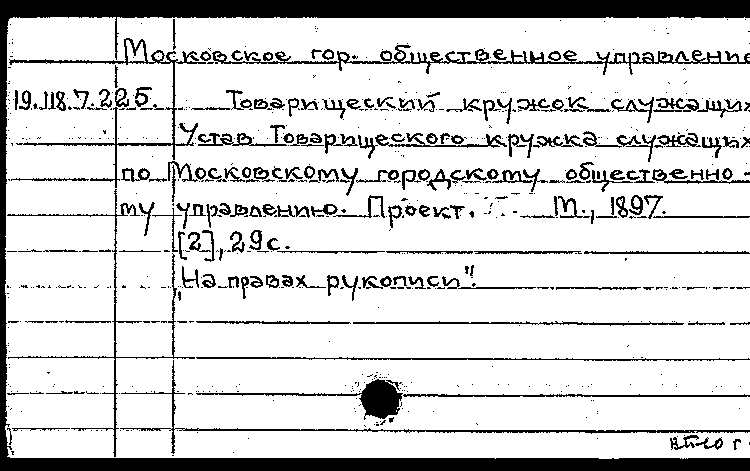 Московское гор. общественное управление
19.118.7.225. Товарищеский кружок служащих
Устав Товарищеского кружка служащих
по Московскому городскому общественно-
му управлению. Проект. М., 1897.
[2], 29 с.
„На правах рукописи".